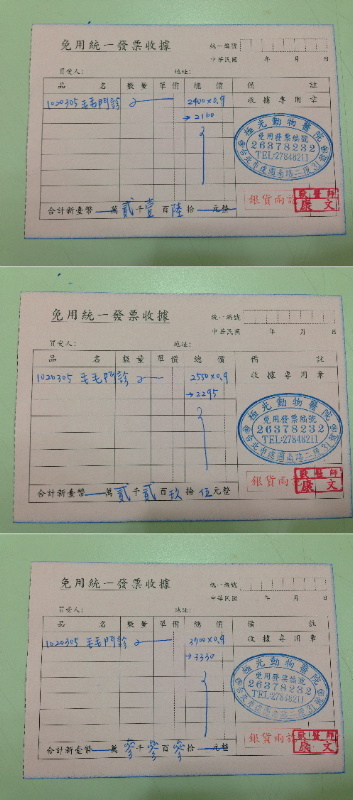 免用統一發票收據
統一編號
中華民國 年 月 日
買受人： 地址：
品名 數量 單價 總價 備註
1020305 毛毛門診 2400×0.9 收據專用章
→2160
極光動物醫院
免用發票統編
26378232
TEL:27848211
銀貨兩訖
獸醫師
康文
合計新臺幣 萬貳千壹百陸拾 元整
免用統一發票收據
統一編號
中華民國 年 月 日
買受人： 地址：
品名 數量 單價 總價 備註
1020305 毛毛門診 2550×0.9 收據專用章
→2295
極光動物醫院
免用發票統編
26378232
TEL:27848211
銀貨兩訖
獸醫師
康文
合計新臺幣 萬貳千貳百玖拾伍元整
免用統一發票收據
統一編號
中華民國 年 月 日
買受人： 地址：
品名 數量 單價 總價 備註
1020305 毛毛門診 3700×0.9 收據專用章
→3330
極光動物醫院
免用發票統編
26378232
TEL:27848211
銀貨兩訖
獸醫師
康文
合計新臺幣 萬參千參百參拾 元整